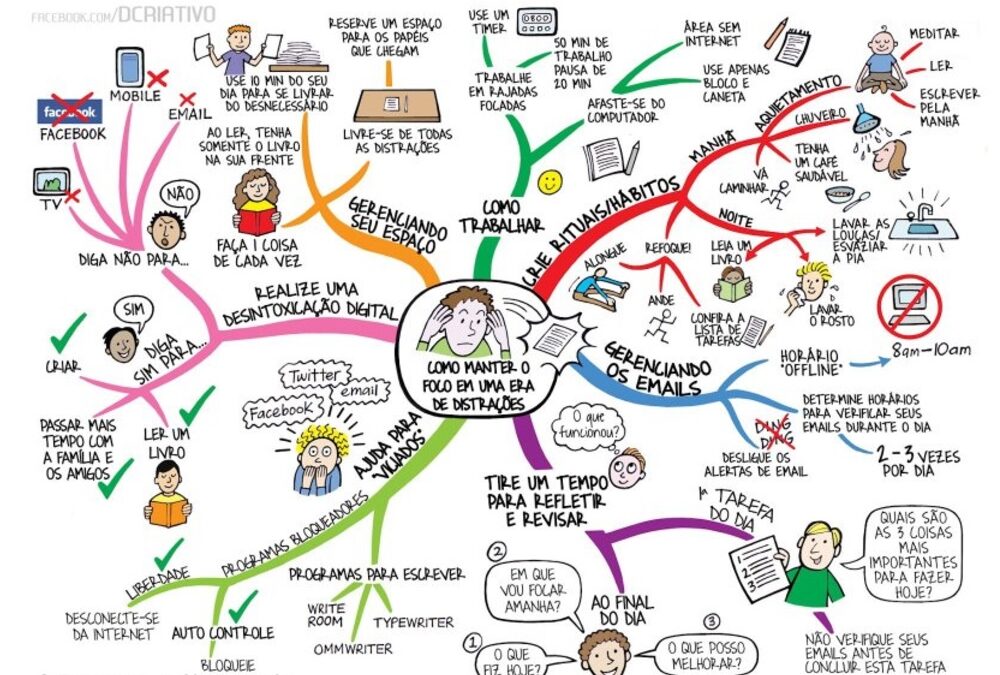 FACEBOOK.COM/DCRIATIVO
COMO MANTER O
FOCO EM UMA ERA
DE DISTRAÇÕES
COMO
TRABALHAR
USE UM
TIMER
TRABALHE
EM RAJADAS
FOCADAS
50 MIN DE
TRABALHO
PAUSA DE
20 MIN
AFASTE-SE DO
COMPUTADOR
ÁREA SEM
INTERNET
USE APENAS
BLOCO E
CANETA
CRIE RITUAIS/HÁBITOS
MANHÃ
AQUIETAMENTO
MEDITAR
LER
ESCREVER
PELA
MANHÃ
CHUVEIRO
TENHA
UM CAFÉ
SAUDÁVEL
VÁ
CAMINHAR
NOITE
LAVAR AS
LOUÇAS/
ESVAZIAR
A PIA
LEIA UM
LIVRO
LAVAR
O ROSTO
REFOQUE!
ALONGUE
ANDE
CONFIRA A
LISTA DE
TAREFAS
GERENCIANDO
OS EMAILS
HORÁRIO
"OFFLINE"
8am-10am
DETERMINE HORÁRIOS
PARA VERIFICAR SEUS
EMAILS DURANTE O DIA
2-3 VEZES
POR DIA
DING
DING
DESLIGUE OS
ALERTAS DE EMAIL
TIRE UM TEMPO
PARA REFLETIR
E REVISAR
O que
funcionou?
1ª TAREFA
DO DIA
1
2
3
QUAIS SÃO
AS 3 COISAS
MAIS
IMPORTANTES
PARA FAZER
HOJE?
NÃO VERIFIQUE SEUS
EMAILS ANTES DE
CONCLUIR ESTA TAREFA
AO FINAL
DO DIA
1
O QUE
FIZ HOJE?
2
EM QUE
VOU FOCAR
AMANHA?
3
O QUE POSSO
MELHORAR?
AJUDA PARA
"VICIADOS"
Twitter
email
Facebook
PROGRAMAS BLOQUEADORES
LIBERDADE
DESCONECTE-SE
DA INTERNET
AUTO CONTROLE
BLOQUEIE
PROGRAMAS PARA ESCREVER
WRITE
ROOM
OMMWRITER
TYPEWRITER
REALIZE UMA
DESINTOXICAÇÃO DIGITAL
DIGA
SIM PARA...
SIM
CRIAR
PASSAR MAIS
TEMPO COM
A FAMÍLIA E
OS AMIGOS
LER UM
LIVRO
DIGA NÃO PARA...
NÃO
TV
facebook
FACEBOOK
MOBILE
EMAIL
GERENCIANDO
SEU ESPAÇO
USE 10 MIN DO SEU
DIA PARA SE LIVRAR
DO DESNECESSÁRIO
RESERVE UM ESPAÇO
PARA OS PAPÉIS
QUE CHEGAM
LIVRE-SE DE TODAS
AS DISTRAÇÕES
AO LER, TENHA
SOMENTE O LIVRO
NA SUA FRENTE
FAÇA 1 COISA
DE CADA VEZ